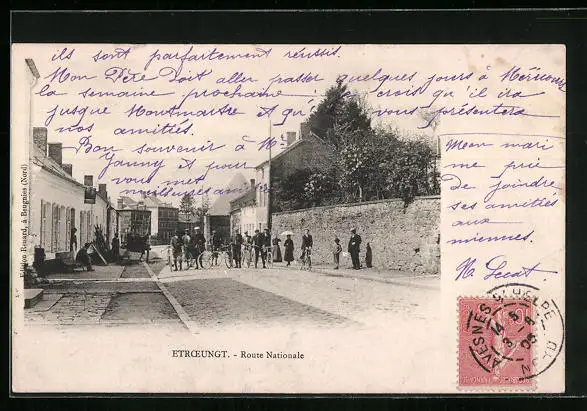 ils sont parfaitement réussis.
Mon Père doit aller passer quelques jours à
la semaine prochaine crois qu'il ira
jusque Montmartre et qu' vous présentera
nos amitiés.
Bon souvenir à M.
et pour
vous mes
meilleures
Mon mari
me prie
de joindre
ses amitiés
aux
miennes.
Edition Renard, à Beugnies (Nord)
ETRŒUNGT. - Route Nationale
AVESNES S HELPE
NORD